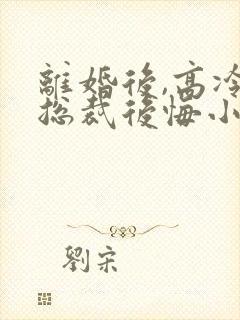 離婚後,高冷
總裁後悔小
劉宋